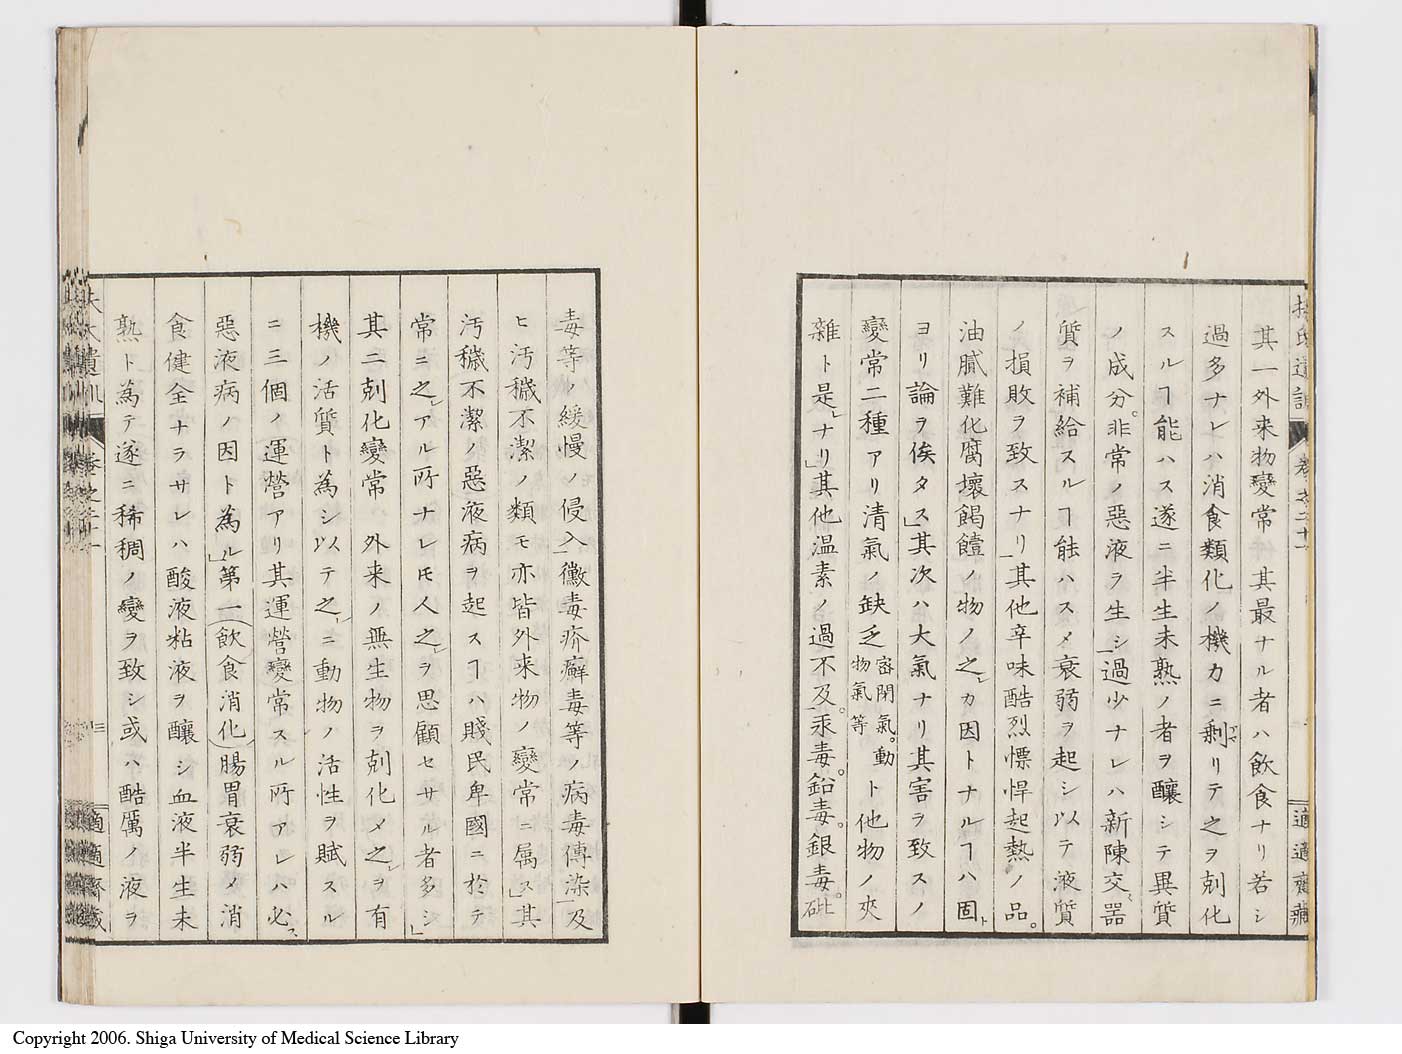 其一外来物變常其最ナル者ハ飲食ナリ若シ
過多ナレハ消食類化ノ機力ニ剩リテ之ヲ剋化
スルヿ能ハス遂ニ半生未熟ノ者ヲ釀シテ異質
ノ成分。非常ノ惡液ヲ生シ」過少ナレハ新陳交噐
質ヲ補給スルヿ能ハスメ衰弱ヲ起シ以テ液質
ノ損敗ヲ致スナリ」其他辛味酷烈慓悍起熱ノ品。
油膩難化腐壞餲饐ノ物ノ之カ因トナルヿハ固ト
ヨリ論ヲ俟タス」其次ハ大氣ナリ其害ヲ致スノ
變常二種アリ清氣ノ缺乏密閉氣。動物氣等ト他物ノ夾
雜ト是ナリ」其他温素ノ過不及。汞毒。鉛毒。銀毒。砒
毒等ノ緩慢ノ侵入」黴毒疥癬毒等ノ病毒傳染」及
ヒ汚穢不潔ノ類モ亦皆外来物ノ變常ニ属ス」其
汚穢不潔ノ惡液病ヲ起スヿハ賤民卑國ニ於テ
常ニ之アル所ナレ𪜈人之ヲ思顧セサル者多シ」
其二剋化變常ハ外来ノ無生物ヲ剋化メ之ヲ有
機ノ活質ト為シ以テ之ニ動物ノ活性ヲ賦スル
ニ三個ノ運營アリ其運營變常スル所アレハ必ス
惡液病ノ因ト為ル」第一飲食消化腸胃衰弱メ消
食健全ナラサレハ酸液粘液ヲ釀シ血液半生未
熟ト為テ遂ニ稀稠ノ變ヲ致シ或ハ酷厲ノ液ヲ
適適齋藏
Copyright 2006. Shiga University of Medical Science Library